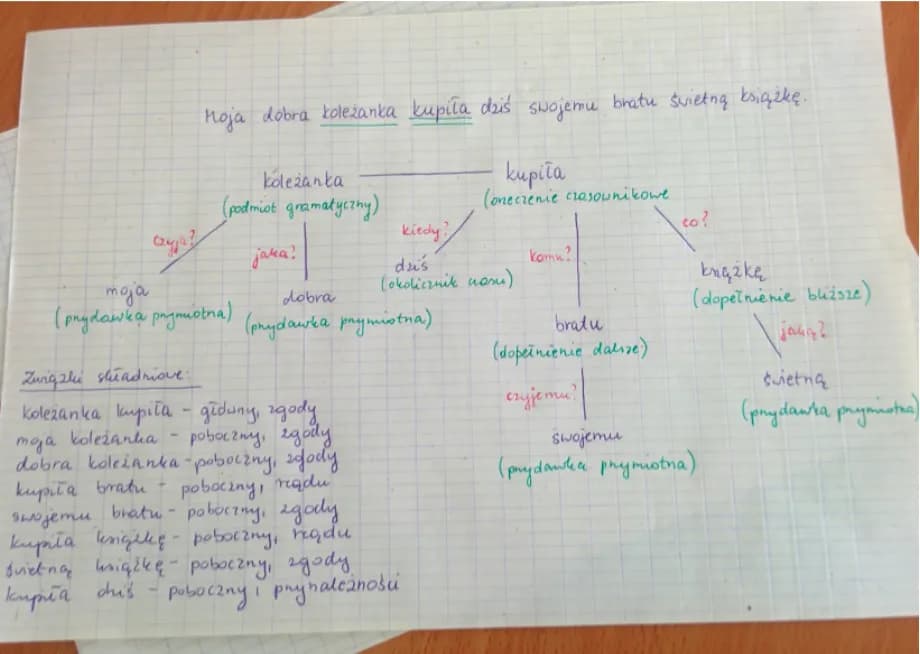 Moja dobra koleżanka kupiła dziś swojemu bratu świetną książkę.
koleżanka kupiła
(podmiot gramatyczny) (orzeczenie czasownikowe
czyja? jaka? kiedy? komu? co?
moja dobra dziś książkę
(przydawka przymiotna) (przydawka przymiotna) (okolicznik czasu) (dopełnienie bliższe)
bratu jaką?
(dopełnienie dalsze)
czyjemu? świetną
swojemu (przydawka przymiotna)
(przydawka przymiotna)
Związki składniowe:
koleżanka kupiła - główny, zgody
moja koleżanka - poboczny, zgody
dobra koleżanka - poboczny, zgody
kupiła bratu - poboczny, rządu
swojemu bratu - poboczny, zgody
kupiła książkę - poboczny, rządu
świetną książkę - poboczny, zgody
kupiła dziś - poboczny, przynależności